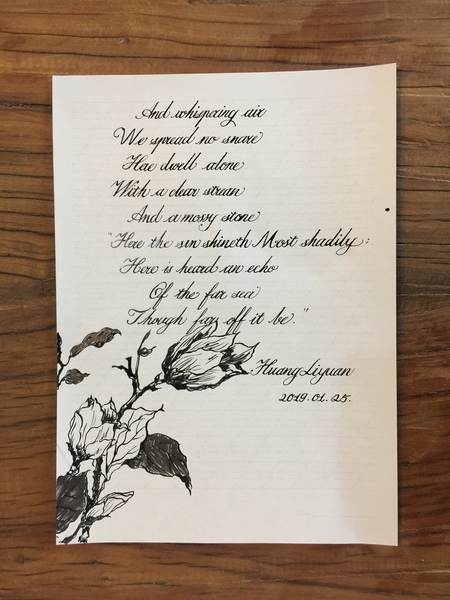 And whispering air
We spread no snare
Here dwell alone
With a clear stream
And a mossy stone
"Here the sun shineth Most shadily;
Here is heard an echo
Of the far sea
Though far off it be."
Huang Liyuan
2019.01.25.